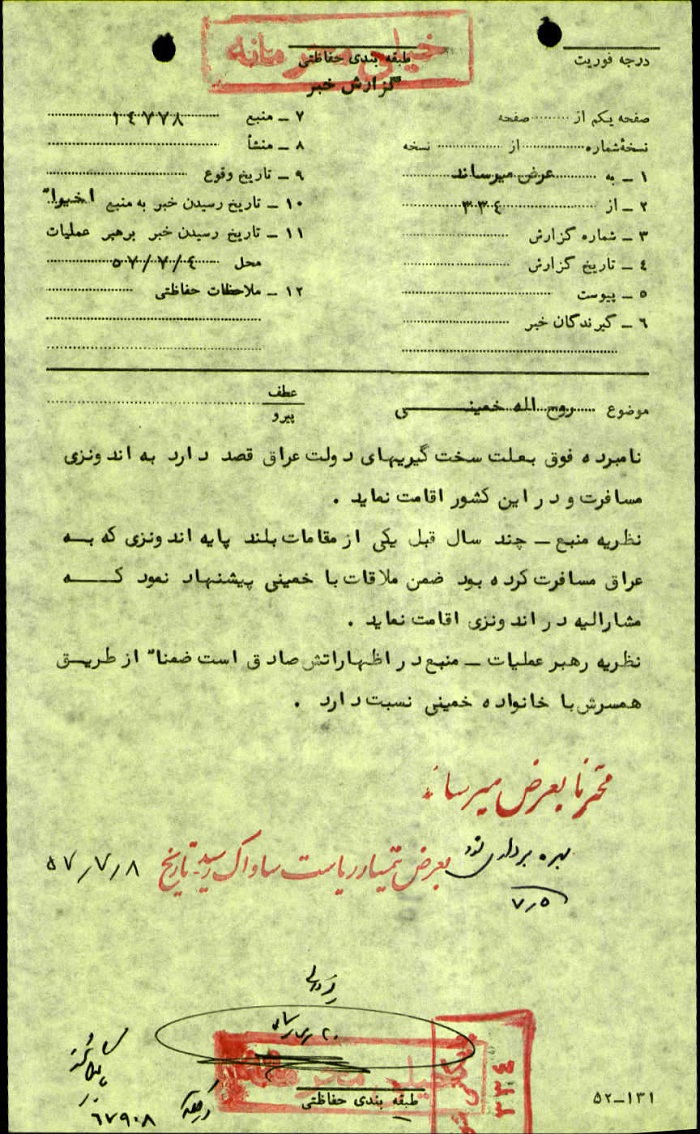 خیلی محرمانه
طبقه بندی حفاظتی
گزارش خبر
درجه فوریت
صفحه یکم از ........ صفحه
نسخهٔ شماره ........ از ........ نسخه
۱ ـ به عرض میرساند
۲ ـ از ۳۳٤
۳ ـ شماره گزارش
٤ ـ تاریخ گزارش
۵ ـ پیوست
۶ ـ گیرندگان خبر
۷ ـ منبع ۱٤۷۷۸
۸ ـ منشأ
۹ ـ تاریخ وقوع
۱۰ ـ تاریخ رسیدن خبر به منبع اخیرا"
۱۱ ـ تاریخ رسیدن خبر برهبر عملیات
محل ۵۷/۷/٤
۱۲ ـ ملاحظات حفاظتی
موضوع روح الله خمینی
عطف
پیرو
نامبرده فوق بعلت سخت گیریهای دولت عراق قصد دارد به اندونزی
مسافرت و در این کشور اقامت نماید .
نظریه منبع ـ چند سال قبل یکی از مقامات بلند پایه اندونزی که به
عراق مسافرت کرده بود ضمن ملاقات با خمینی پیشنهاد نمود که
مشارالیه در اندونزی اقامت نماید .
نظریه رهبر عملیات ـ منبع در اظهاراتش صادق است ضمنا" از طریق
همسرش با خانواده خمینی نسبت دارد .
محترما بعرض میرساند
بهره برداری شود
۷/۵
بعرض تیمسار ریاست ساواک رسید تاریخ ۵۷/۷/۸
خیلی محرمانه
طبقه بندی حفاظتی
۳۳٤
۶۷۹۰۸
۵۲-۱۳۱